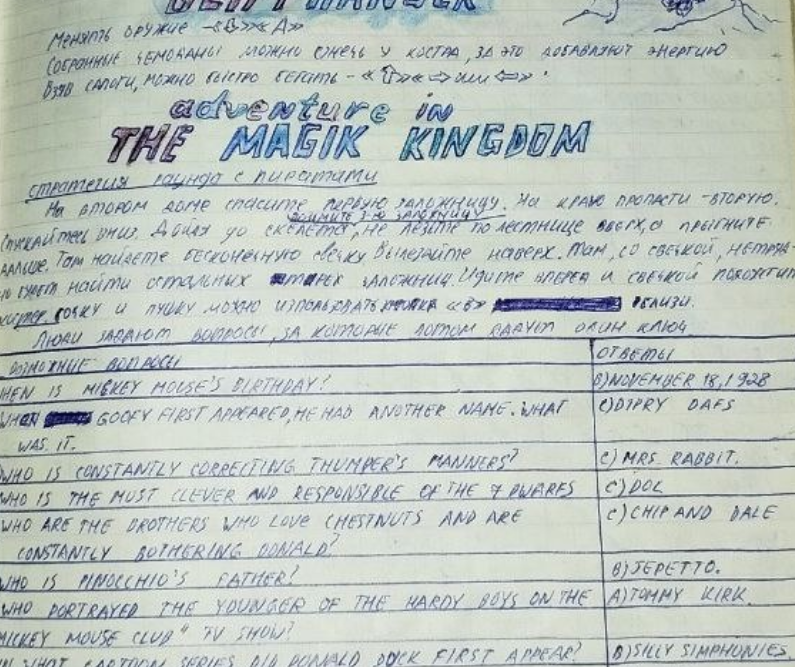 МЕНЯТЬ ОРУЖИЕ - «В» «А»
СОБРАННЫЕ ЧЕМОДАНЫ МОЖНО СЖЕЧЬ У КОСТРА, ЗА ЭТО ДОБАВЛЯЮТ ЭНЕРГИЮ
ВЗЯВ САПОГИ, МОЖНО БЫСТРО БЕГАТЬ - «⇧» «⇨ ИЛИ ⇦».
adventure in
THE MAGIK KINGDOM
СТРАТЕГИЯ РАУНДА С ПИРАТАМИ
На втором доме спасите первую заложницу. На краю пропасти - вторую.
возьмите 3-ю заложницу
Спускайтесь вниз. Дойдя до скелета, не лезьте по лестнице вверх, а прыгните
дальше. Там найдете бесконечную свечку. Вылезайте наверх. Там, со свечкой,
будет найти остальных заложниц. Идите вперед и свечкой
и пушку можно использовать «В» вблизи.
Люди задают вопросы, за которые потом дадут один ключ
ВОЗМОЖНЫЕ ВОПРОСЫ ОТВЕТЫ
HEN IS MICKEY MOUSE'S BIRTHDAY? B) NOVEMBER 18, 1928
WHEN GOOFY FIRST APPEARED, HE HAD ANOTHER NAME. WHAT C) DIPRY DAFS
WAS IT.
WHO IS CONSTANTLY CORRECTING THUMPER'S MANNERS? C) MRS. RABBIT.
WHO IS THE MOST CLEVER AND RESPONSIBLE OF THE 7 DWARFS C) DOL
WHO ARE THE BROTHERS WHO LOVE CHESTNUTS AND ARE C) CHIP AND DALE
CONSTANTLY BOTHERING DONALD?
WHO IS PINOCCHIO'S FATHER? B) JEPETTO.
WHO PORTRAYED THE YOUNGER OF THE HARDY BOYS ON THE A) TOMMY KIRK.
MICKEY MOUSE CLUB" TV SHOW?
IN WHAT CARTOON SERIES DID DONALD DUCK FIRST APPEAR? B) SILLY SIMPHONIES.